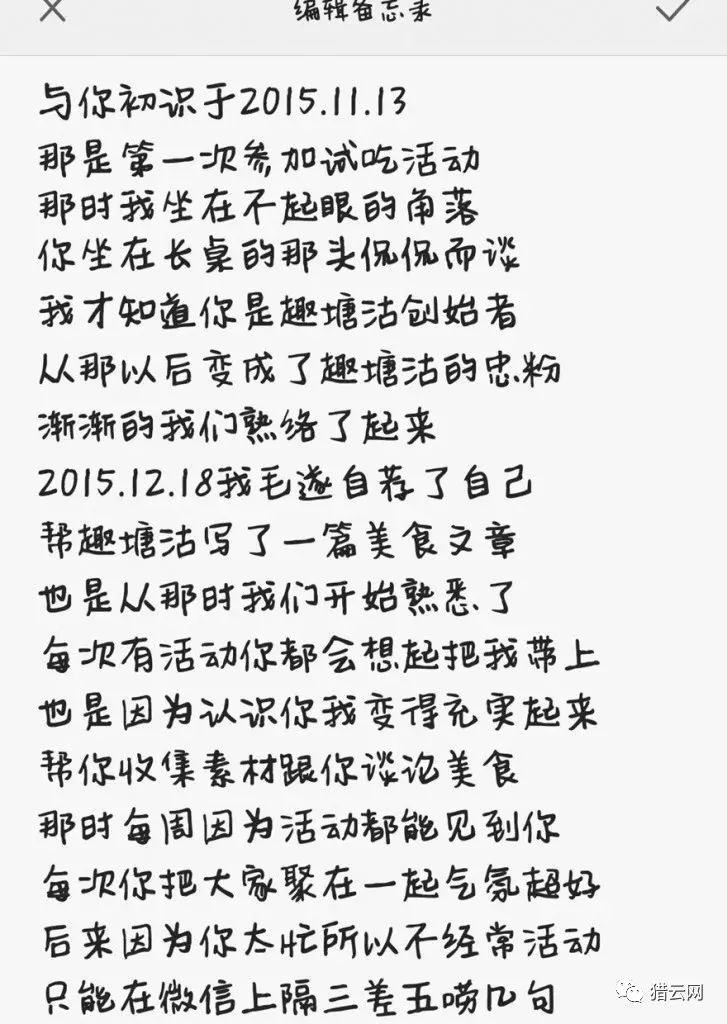 编辑备忘录
与你初识于2015.11.13
那是第一次参加试吃活动
那时我坐在不起眼的角落
你坐在长桌的那头侃侃而谈
我才知道你是趣塘沽创始者
从那以后变成了趣塘沽的忠粉
渐渐的我们熟络了起来
2015.12.18我毛遂自荐了自己
帮趣塘沽写了一篇美食文章
也是从那时我们开始熟悉了
每次有活动你都会想起把我带上
也是因为认识你我变得充实起来
帮你收集素材跟你谈论美食
那时每周因为活动都能见到你
每次你把大家聚在一起气氛超好
后来因为你太忙所以不经常活动
只能在微信上隔三差五唠几句
猎云网